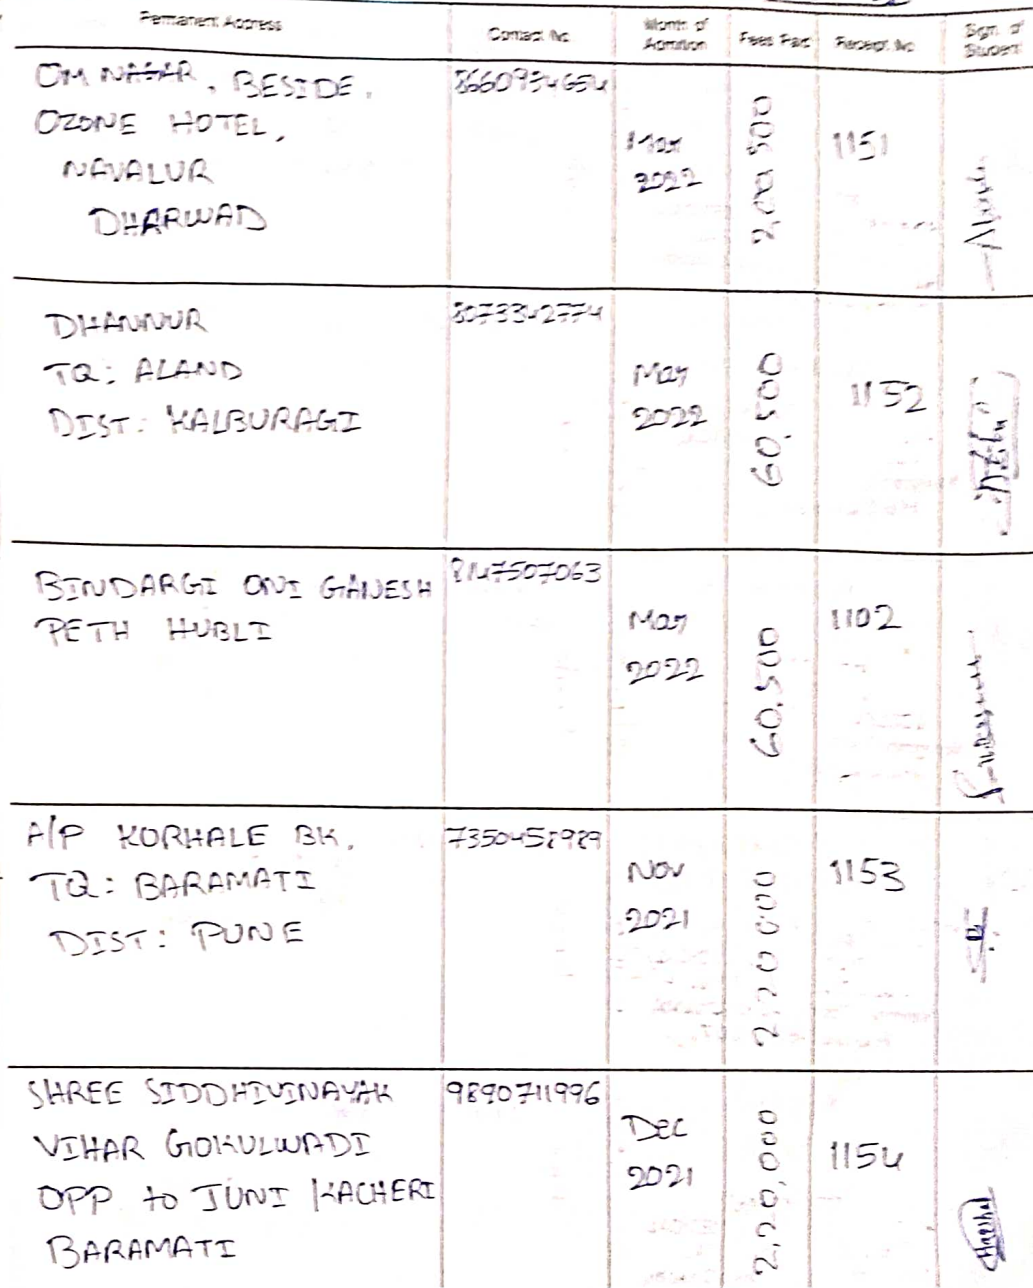 Permanent Address
Contact No
Month of Admition
Fees Paid
Receipt No
Sign. of Student
OM NAGAR, BESIDE,
OZONE HOTEL,
NAVALUR
DHARWAD
8660934654
2022
2,00 500
1151
DHANNUR
TQ: ALAND
DIST: KALBURAGI
8073342774
May
2022
60,500
1152
BINDARGI ONI GANESH
PETH HUBLI
8147507063
May
2022
60,500
1102
A/P KORHALE BK.
TQ: BARAMATI
DIST: PUNE
7350458989
Nov
2021
2,20000
1153
SHREE SIDDHIVINAYAK
VIHAR GOKULWADI
OPP to JUNI KACHERI
BARAMATI
9890711996
Dec
2021
2,20,000
1154
Harshal